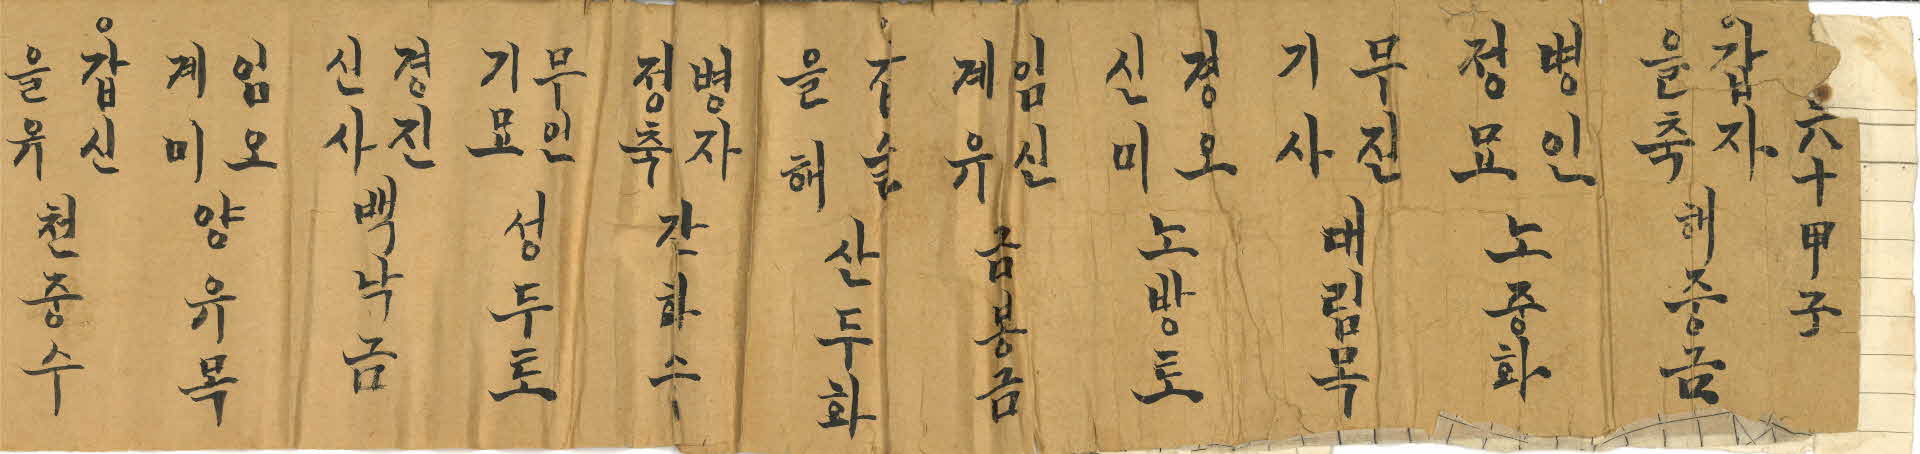 六十甲子
갑자
을축
해중금
병인
정묘
노중화
무진
기사
대림목
경오
신미
노방토
임신
계유
금봉금
갑술
을해
산두화
병자
정축
간하수
무인
기묘
성두토
경진
신사
백낙금
임오
계미
양유목
갑신
을유
천중수